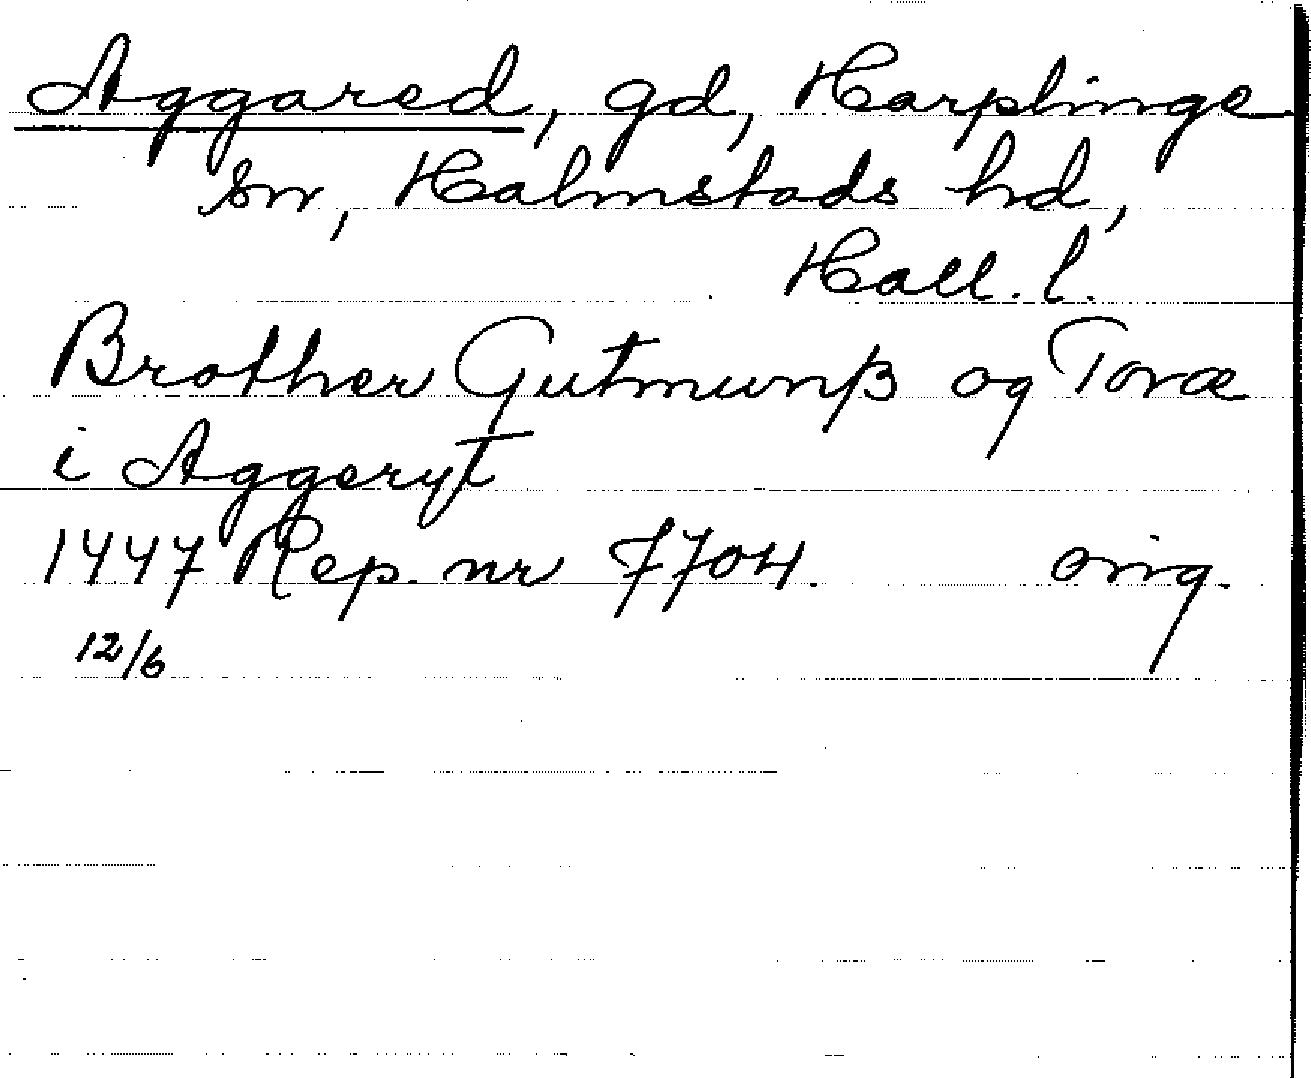 Aggared, gd, Harplinge
sn, Halmstads hd,
Hall. l.
Brother Gutmunß og Toræ
i Aggeryt
1447 Rep. nr 7704. orig.
12/6